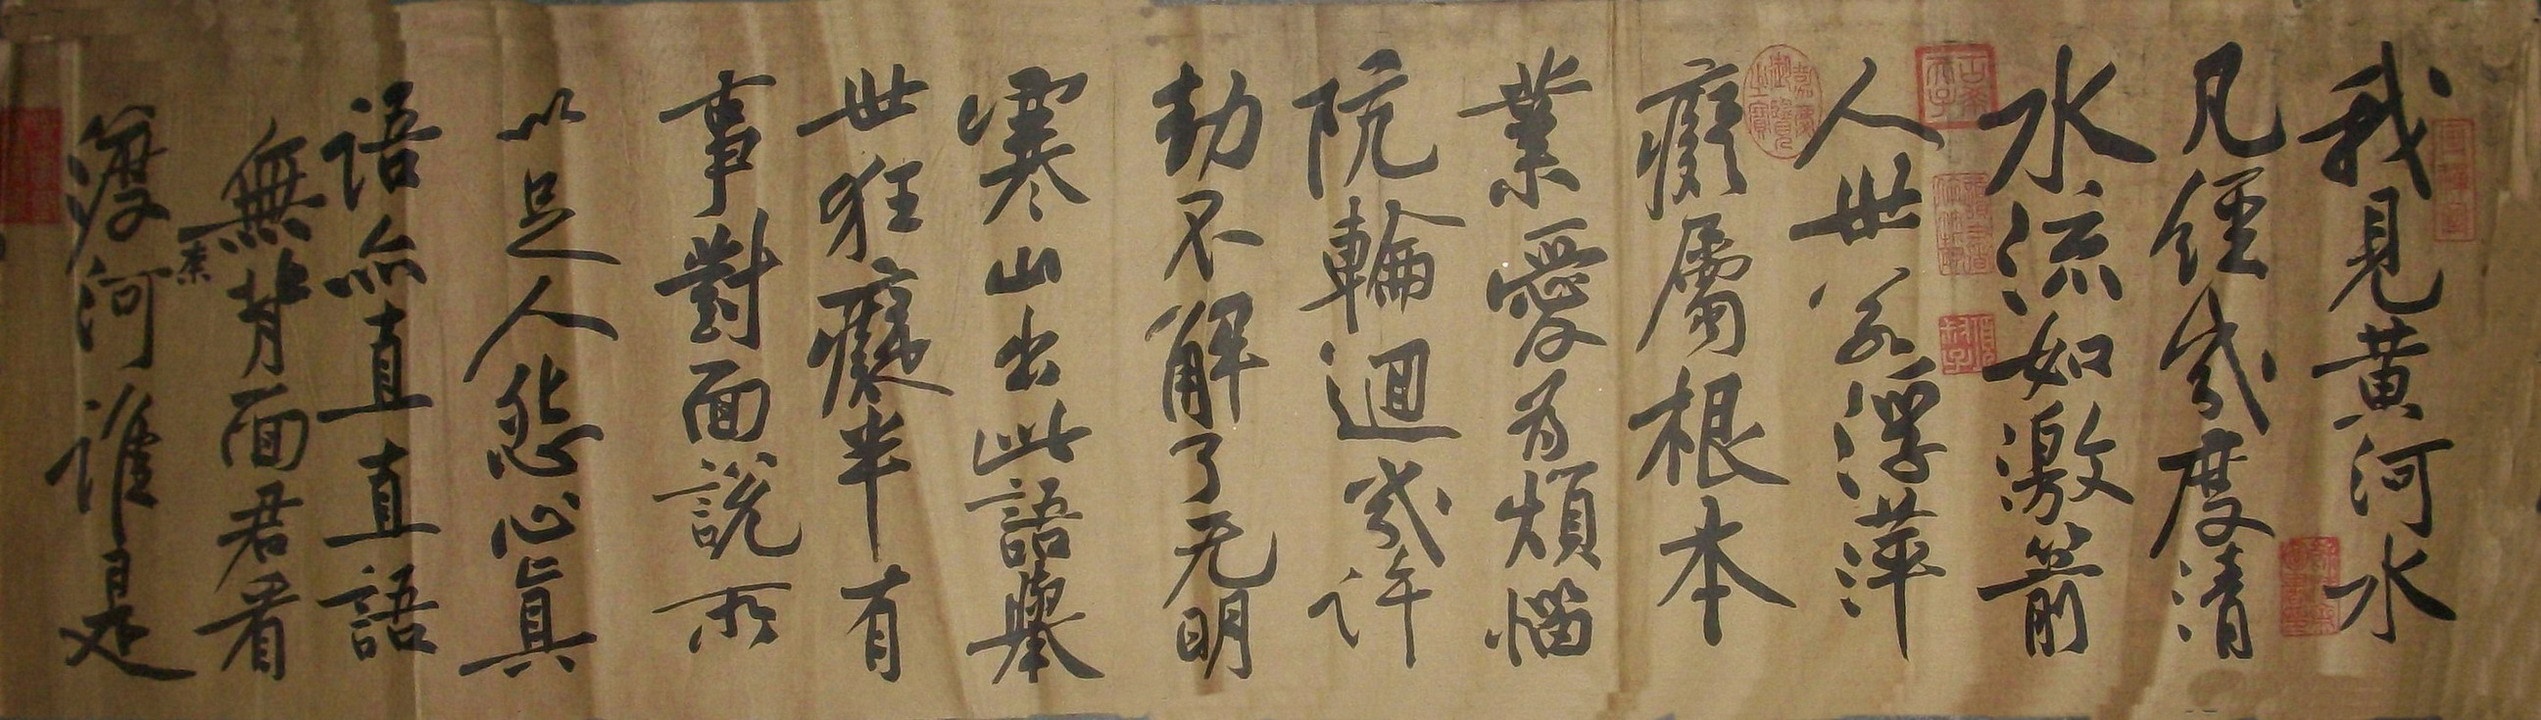 我見黃河水
凡經幾度清
水流如激箭
人世若浮萍
癡屬根本
業愛為煩惱
阬輪迴幾許
劫不解了无明
寒山出此語舉
世狂癡半有
事對面說所
以足人怨心真
語亦直直語
無背面君看
渡河誰是
素